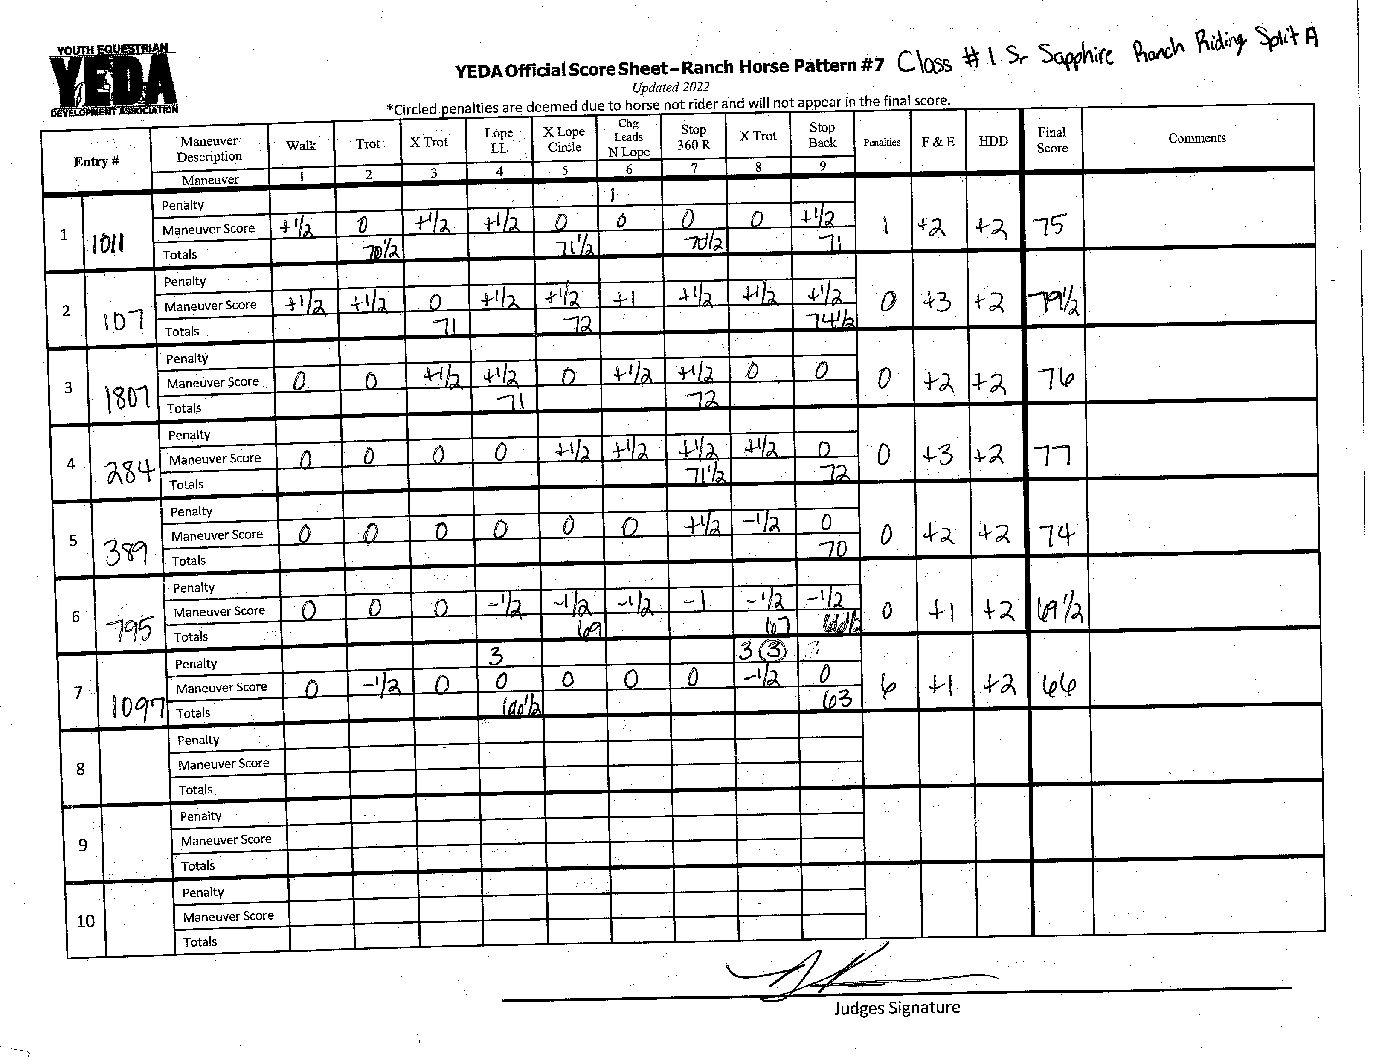 YOUTH EQUESTRIAN
YEDA
DEVELOPMENT ASSOCIATION
Class #1 Sr Sapphire Ranch Riding Split A
YEDA Official Score Sheet – Ranch Horse Pattern #7
Updated 2022
*Circled penalties are deemed due to horse not rider and will not appear in the final score.
Entry # Maneuver Description Walk Trot X Trot Lope LL X Lope Circle Chg Leads N Lope Stop 360 R X Trot Stop Back Penalties F & E HDD Final Score Comments
Maneuver 1 2 3 4 5 6 7 8 9
Penalty 1
1 1011 Maneuver Score +1/2 0 +1/2 +1/2 0 0 0 0 +1/2 1 +2 +2 75
Totals 70 1/2 71 1/2 70 1/2 71
Penalty
2 107 Maneuver Score +1/2 +1/2 0 +1/2 +1/2 +1 +1/2 +1/2 +1/2 0 +3 +2 79 1/2
Totals 71 72 74 1/2
Penalty
3 1807 Maneuver Score 0 0 +1/2 +1/2 0 +1/2 +1/2 0 0 0 +2 +2 76
Totals 71 72
Penalty
4 284 Maneuver Score 0 0 0 0 +1/2 +1/2 +1/2 +1/2 0 0 +3 +2 77
Totals 71 1/2 72
Penalty
5 389 Maneuver Score 0 0 0 0 0 0 +1/2 -1/2 0 0 +2 +2 74
Totals 70
Penalty
6 795 Maneuver Score 0 0 0 -1/2 -1/2 -1/2 -1 -1/2 -1/2 0 +1 +2 69 1/2
Totals 69 67 66 1/2
Penalty 3 3 (3)
7 1097 Maneuver Score 0 -1/2 0 0 0 0 0 -1/2 0 6 +1 +2 66
Totals 66 1/2 63
Penalty
8 Maneuver Score
Totals
Penalty
9 Maneuver Score
Totals
Penalty
10 Maneuver Score
Totals
Judges Signature